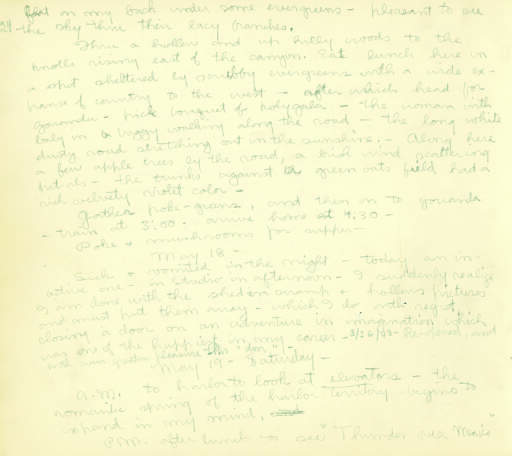 Rest on my back under some evergreens - pleasant to see
the sky thru their lacy branches.
Thru a hollow and up hilly woods to the
knolls rising east of the canyon. Eat lunch here in
a spot sheltered by scrubby evergreens with a wide ex-
panse of country to the west - after which head for
gowanda - pick bouquet of polygala - The woman with
baby in a buggy walking along the road - the long white
dusty road stretching out in the sunshine. - Along here
a few apple trees by the road, a brisk wind scattering
petals - the trunks against the green oats field had a
red velvety violet color -
Gather poke-greens, and then on to gowanda
- train at 3:00 - arrive home at 4:30 -
Poke & mushrooms for supper -
May 18 -
Sick & vomited in the night - today an in-
active one - in studio in afternoon - I suddenly realize
I am done with the shed in swamp & hollows pictures
and must put them away - which I do with regret,
closing a door on an adventure in imagination which
was one of the happiest in my career - and
with even greater pleasure
May 19 - Saturday -
A.M. to harbor to look at elevators - the
romantic string of the harbor territory begins to
expand in my mind.
P.M. after lunch to see "Thunder over Mexico"